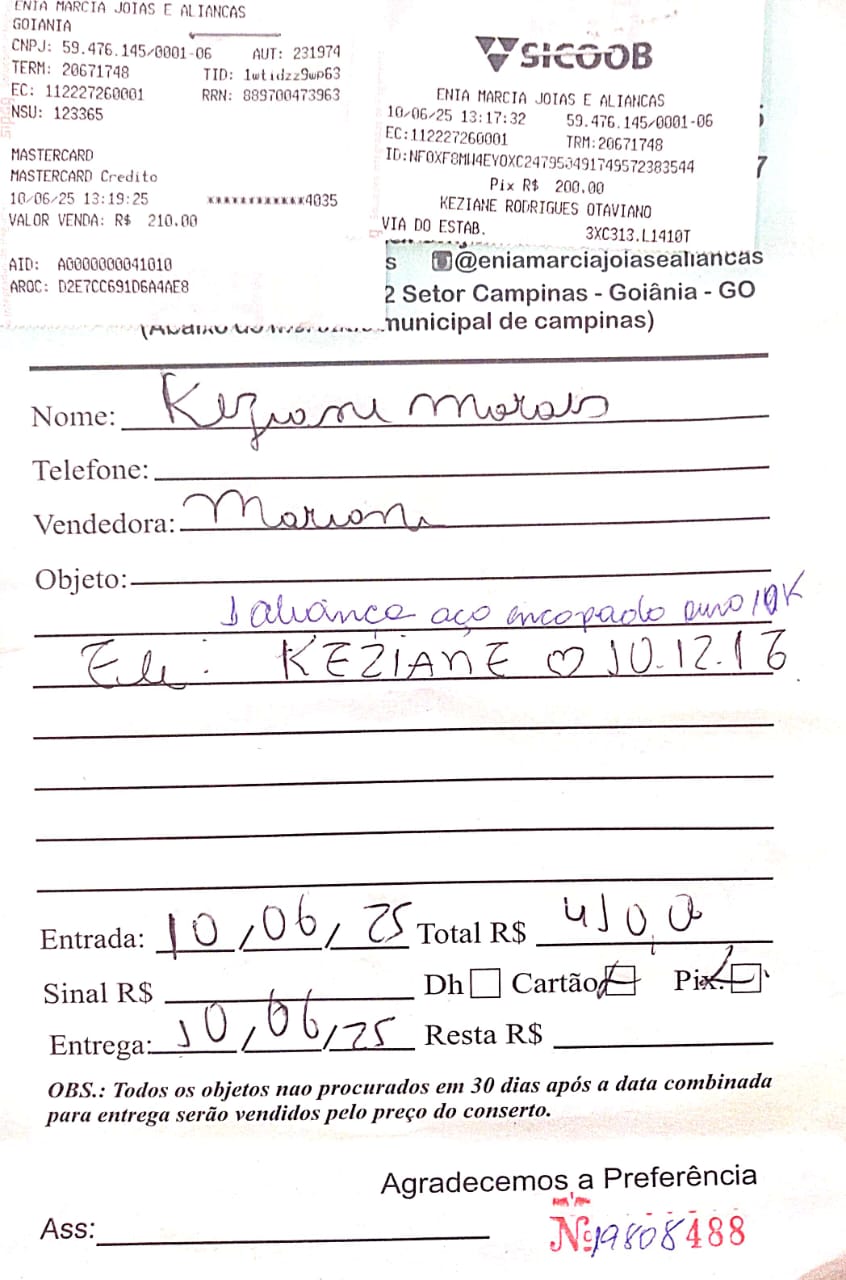 ENIA MARCIA JOIAS E ALIANCAS
GOIANIA
CNPJ: 59.476.145/0001-06 AUT: 231974
TERM: 20671748 TID: 1wtidzz9wp63
EC: 112227260001 RRN: 889700473963
NSU: 123365
MASTERCARD
MASTERCARD Credito
10/06/25 13:19:25 ************4035
VALOR VENDA: R$ 210.00
AID: A0000000041010
ARQC: D2E7CC691D6A4AE8
SICOOB
ENIA MARCIA JOIAS E ALIANCAS
10/06/25 13:17:32 59.476.145/0001-06
EC:112227260001 TRM:20671748
ID:NFOXF8MW4EYOXC247950491749572383544
Pix R$ 200.00
KEZIANE RODRIGUES OTAVIANO
VIA DO ESTAB. 3XC313.L1410T
7
s @eniamarciajoiasealiancas
2 Setor Campinas - Goiânia - GO
municipal de campinas)
Nome: Keziane Morais
Telefone:
Vendedora: Mariani
Objeto:
1 aliança aço encapado ouro 10K
Ele: KEZIANE ♡ 10.12.16
Entrada: 10/06/25 Total R$ 410,0
Sinal R$ Dh Cartão Pix.
Entrega: 10/06/25 Resta R$
OBS.: Todos os objetos nao procurados em 30 dias após a data combinada
para entrega serão vendidos pelo preço do conserto.
Agradecemos a Preferência
Ass: Nº 19808488